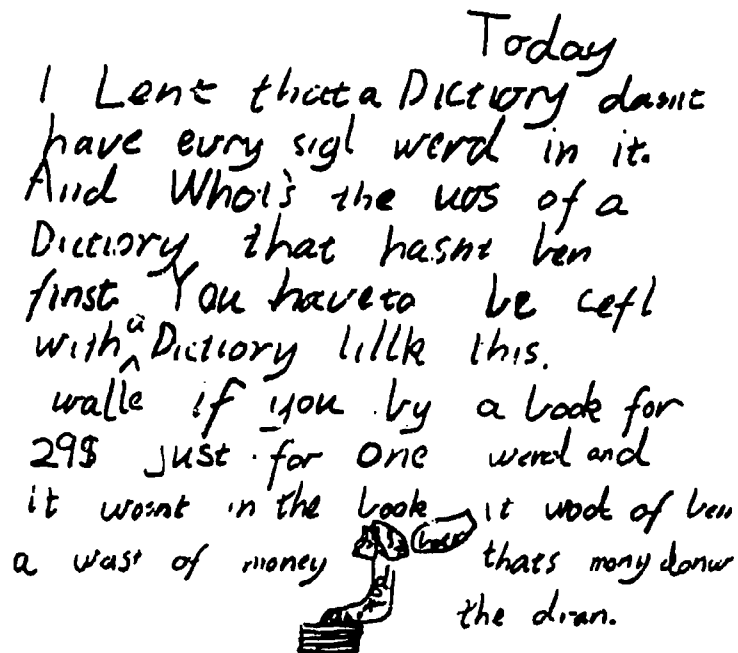 Today
I Lent that a Dictiory dasnt
have eury sigl werd in it.
And Whot's the uos of a
Dictiory that hasnt ben
finst. You have to be cefl
with a Dictiory lillk this.
walle if you by a book for
29$ just for one werd and
it wosnt in the book it wodt of ben
a wast of money thats mony donw
the dran.